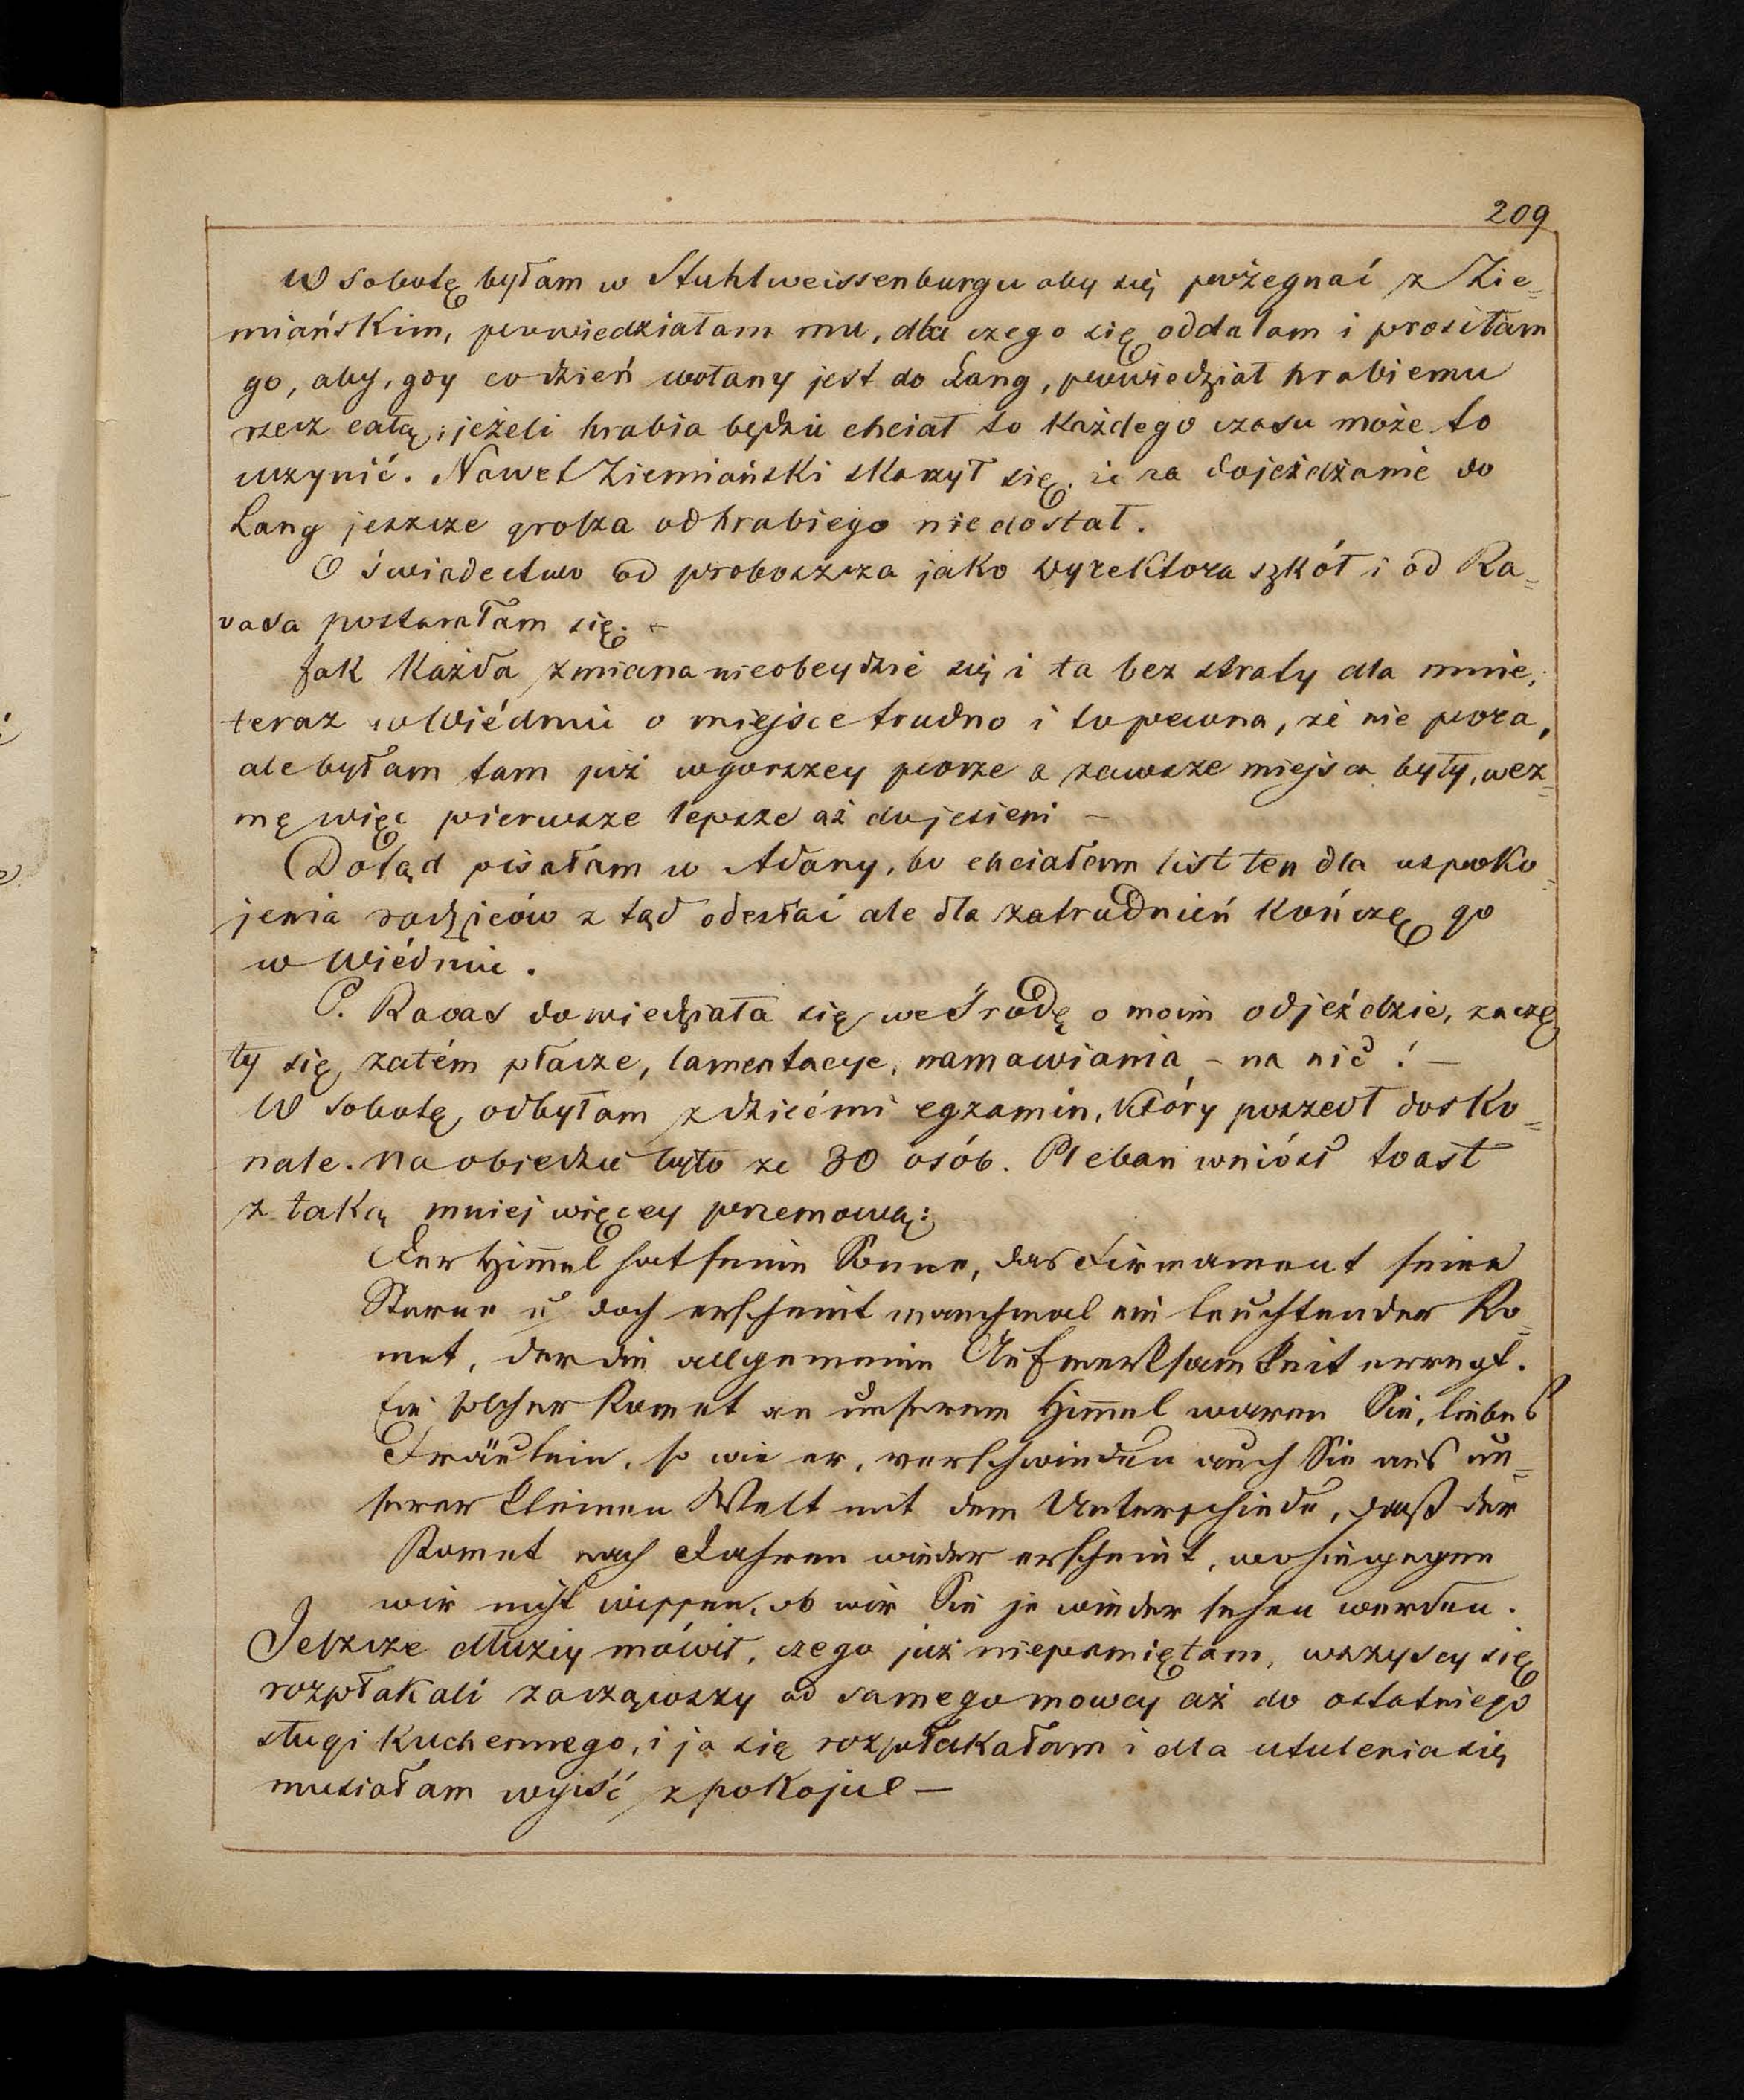 209
W sobotę byłam w Stuhlweissenburgu aby się pożegnać z Zie=
miańskim, powiedziałam mu, dla czego się oddalam i prosiłam
go, aby, gdy codzień wołany jest do Lang, powiedział hrabiemu
rzecz całą; jeżeli hrabia będzie chciał to każdego czasu może to
uczynić. Nawet Ziemiański skarzył się, że za dojeżdżanie do
Lang jeszcze grosza od hrabiego niedostał.
O świadectwo od proboszcza jako dyrektora szkół i od Ra=
vasa postarałam się. –
Jak każda zmiana nieobeydzie się i ta bez straty dla mnie,
teraz w Wiédniu o miejsce trudno i to pewna, że nie pora,
ale byłam tam już w gorszey porze a zawsze miejsca były, wez=
mę więc pierwsze lepsze aż do jesieni –
Dotąd pisałam w Adany, bo chciałam list ten dla uspoko=
jenia rodziców z tąd odesłać ale dla zatrudnień kończę go
w Wiédniu.
P. Ravas dowiedziała się we Środę o moim odjeździe, zaczę
ły się zatém płacze, lamentacye, namawiania – na nic! –
W sobotę odbyłam z dziećmi egzamin, który poszedł dosko=
nale. Na obiedzie było ze 30 osób. Pleban wniósł toast
z taką mniej więcey przemową:
Der Himmel hat seine Sonne, das Firmament seine
Sterne u doch erscheint manchmal ein leuchtender Ko=
met, der die allgemeine Aufmerksamkeit erregt.
Ein solcher Komet an unserem Himmel waren Sie, liebes
Fräulein, so wie er, verschwinden auch Sie aus un=
serer kleinen Welt mit dem Unterschiede, daß der
Komet nach Jahren wieder erscheint, wohingegen
wir nicht wissen, ob wir Sie je wieder sehen werden.
Jeszcze dłużey mówił, czego już niepamiętam, wszyscy się
rozpłakali zacząwszy od samego mowcy aż do ostatniego
sługi kuchennego, i ja się rozpłakałam i dla utulenia się
musiałam wyjść z pokoju –